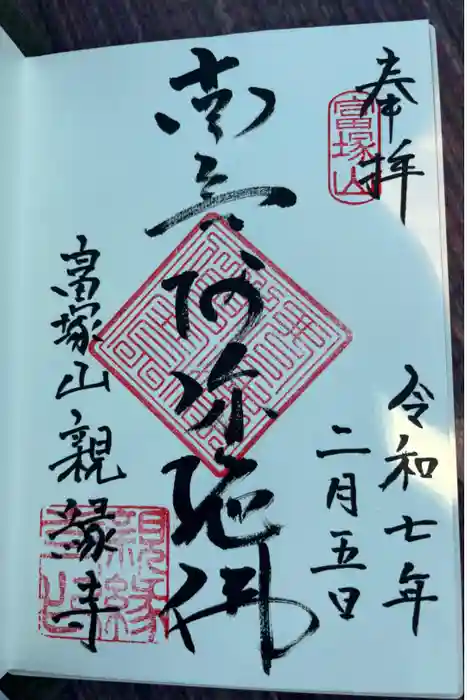 奉拝
富塚山
令和七年
二月五日
南無阿弥陀仏
富塚山親縁寺
親縁